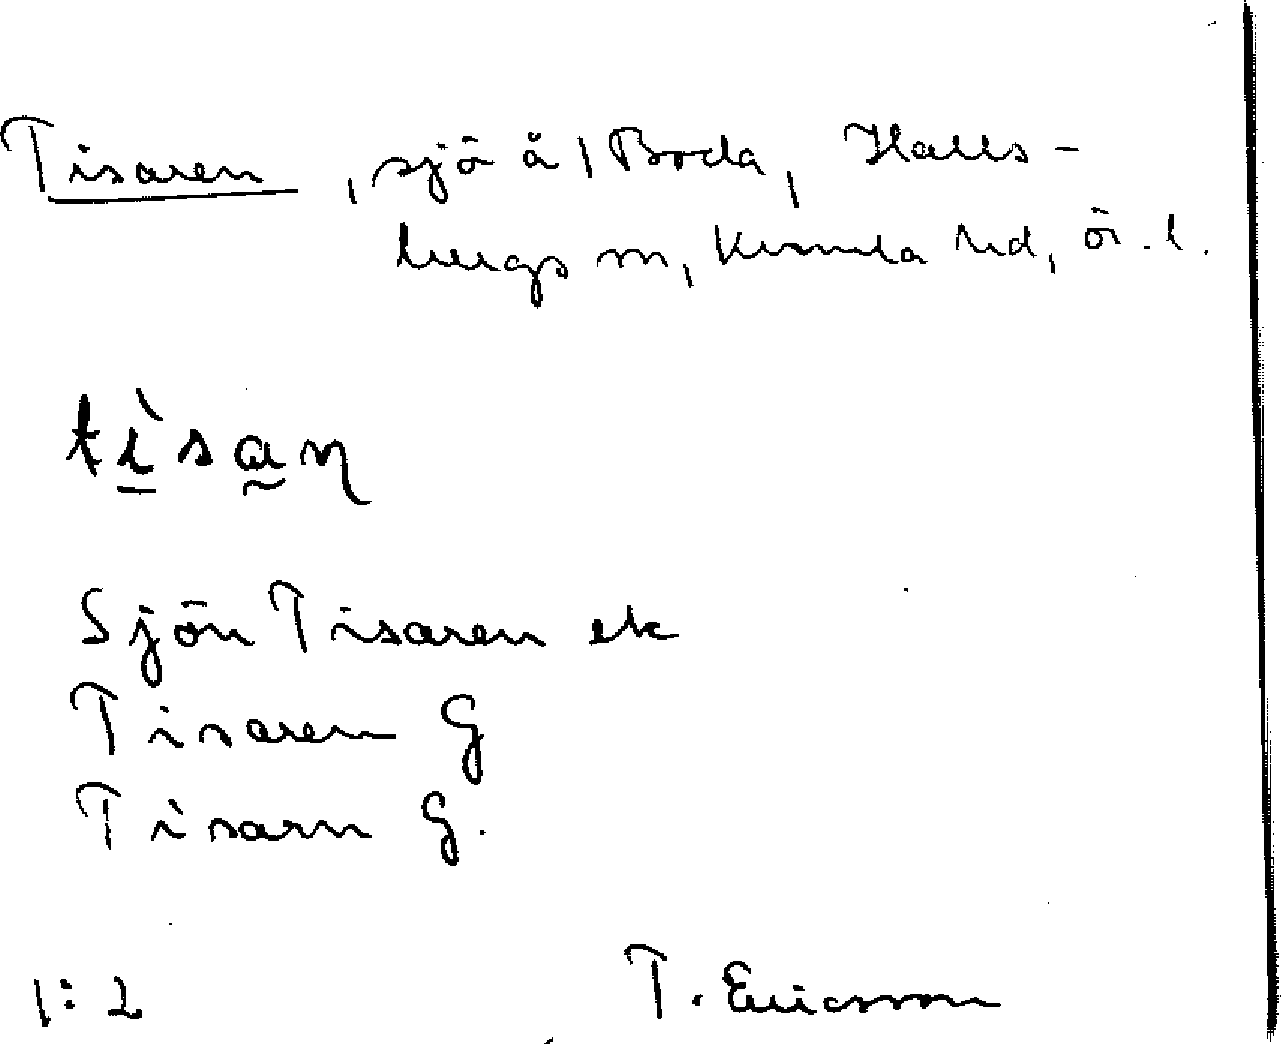 Tisaren, sjö å 1 Boda, Halls-
bergs sn, Kumla hd, Ör. l.
tìsaɳ
Sjön Tisaren ek
Tisaren G
Tisarn G.
1:2 T. Ericsson